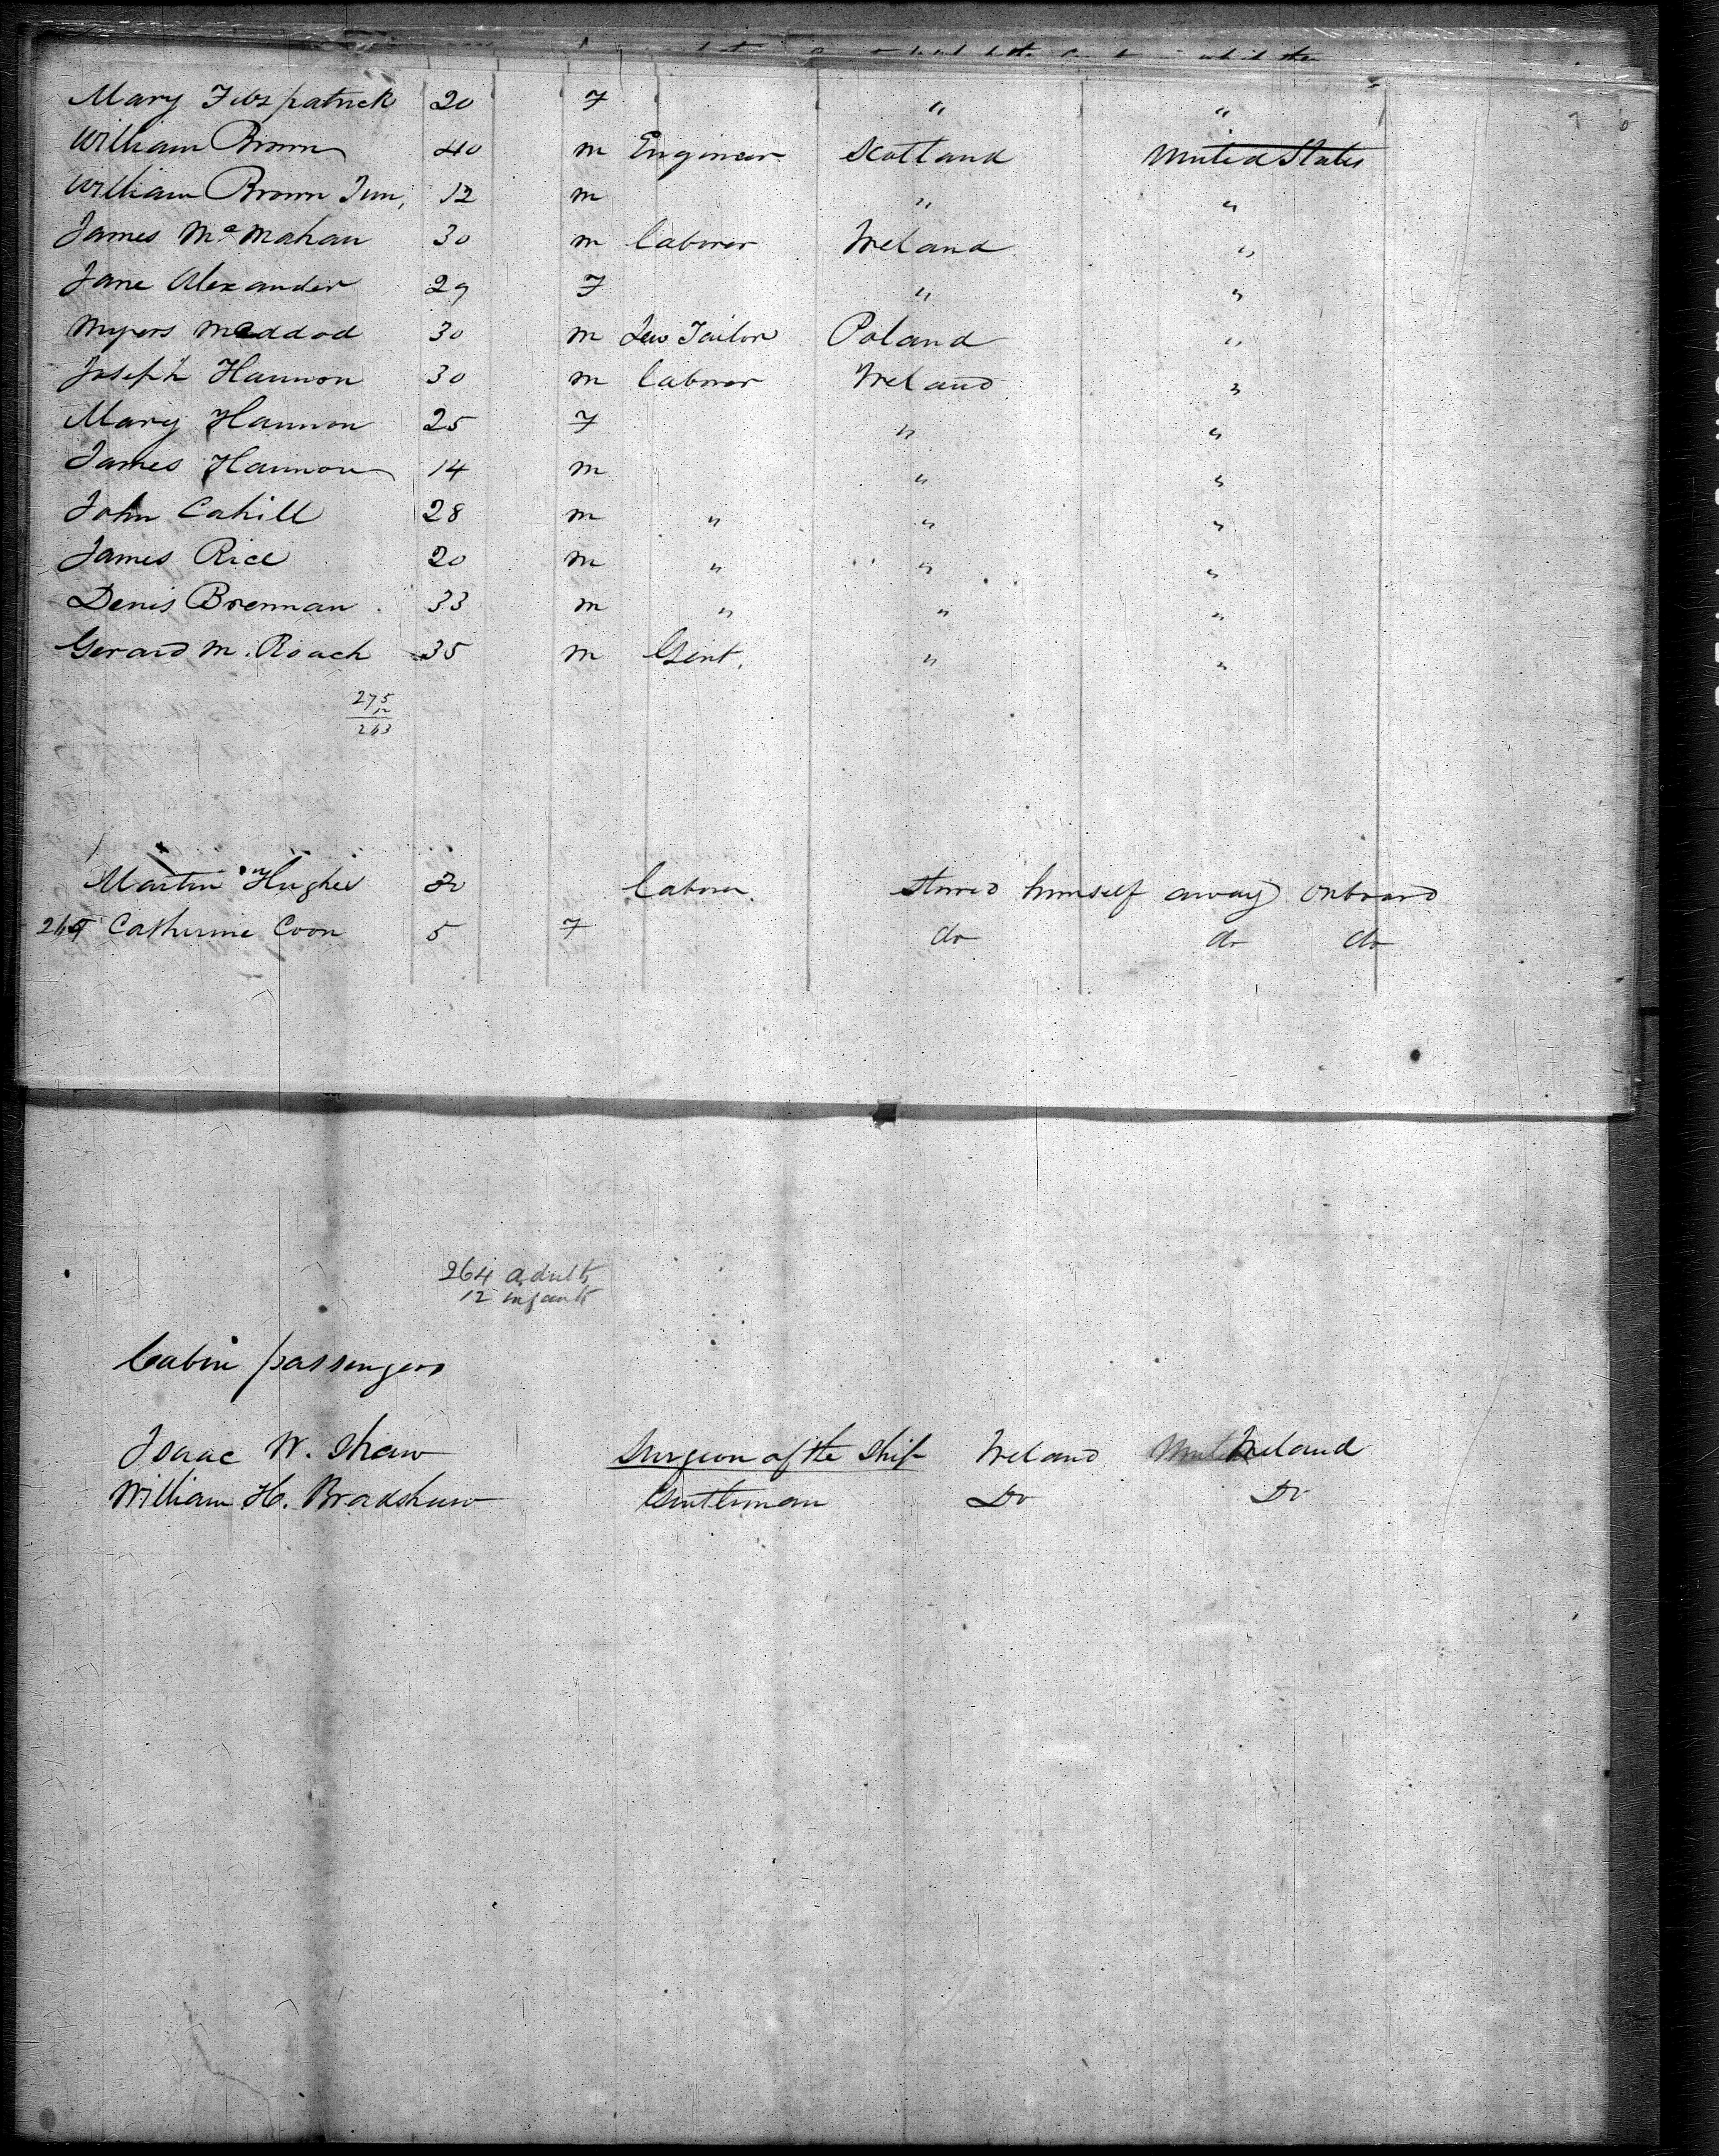 Mary Fitzpatrick 20 F " "
William Brown 40 m Engineer Scotland United States
William Brown Jun, 12 m " "
James Mc Mahan 30 m laborer Ireland "
Jane Alexander 29 F " "
Myers Maddod 30 m Jew Tailor Poland "
Joseph Hannon 30 m laborer Ireland "
Mary Hannon 25 F " "
James Hannon 14 m " "
John Cahill 28 m " " "
James Rice 20 m " " "
Denis Brennan 33 m " " "
Gerard M. Roach 35 m Gent. " "
275
12
263
Martin Hughes laborer. stowed himself away onboard
Catherine Coon 5 F do do do
264 adults
12 infants
Cabin passengers
Isaac W. Shaw Surgeon of the Ship Ireland Ireland
William H. Bradshaw Gentleman Do Do